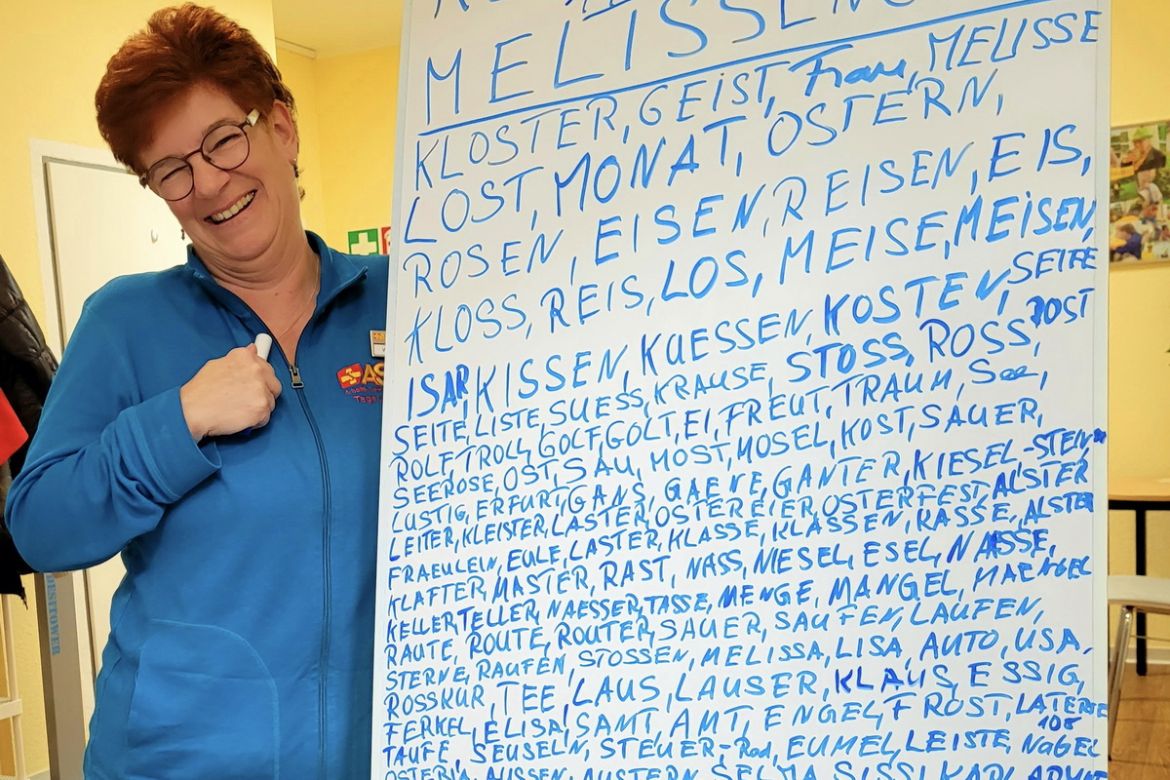 MELISSENG
KLOSTER, GEIST, Frau, MELISSE
LOST, MONAT, OSTERN,
ROSEN, EISEN, REISEN, EIS,
KLOSS, REIS, LOS, MEISE, MEISEN,
ISAR, KISSEN, KUESSEN, KOSTEN, SEIFE
SEITE, LISTE, SUESS, KRAUSE, STOSS, ROSS, POST
ROLF, TROLL, GOLF, GOLT, EI, FREUT, TRAUM, See,
SEEROSE, OST, SAU, MOST, MOSEL, KOST, SAUER,
LUSTIG, ERFURT, GANS, GAENE, GANTER, KIESEL-STEIN
LEITER, KLEISTER, LASTER, OSTEREIER, OSTERFEST, ALSTER
FRAEULEIN, EULE, LASTER, KLASSE, KLASSEN, RASSE, ALSTER
KLAFTER, MASTER, RAST, NASS, NIESEL, ESEL, NAESSE,
KELLER, TELLER, NAESSER, TASSE, MENGE, MANGEL, MAENGEL
RAUTE, ROUTE, ROUTER, SAUER, SAUFEN, LAUFEN,
STERNE, RAUFEN, STOSSEN, MELISSA, LISA, AUTO, USA,
ROSSKUR, TEE, LAUS, LAUSER, KLAUS, ESSIG,
FERKEL, ELISA, SAMT, AMT, ENGEL, FROST, LATERNE
108
TAUFE, SEUSELN, STEUER-Rad, EUMEL, LEISTE, NAGEL
AUSTERN, SELMA, SISSI, KARL
AS